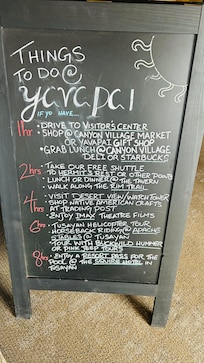 THINGS
TO DO @
yavapai
IF YOU HAVE...
1hr • DRIVE TO VISITOR'S CENTER
• SHOP @ CANYON VILLAGE MARKET
OR YAVAPAI GIFT SHOP
• GRAB LUNCH @ CANYON VILLAGE
DELI OR STARBUCKS
2hrs • TAKE OUR FREE SHUTTLE
TO HERMIT'S REST OR OTHER POINTS
• LUNCH OR DINNER @ THE TAVERN
• WALK ALONG THE RIM TRAIL
4hrs • VISIT DESERT VIEW/WATCHTOWER
• SHOP NATIVE AMERICAN CRAFTS
AT TRADING POST
• ENJOY IMAX THEATRE FILMS
6hrs • TUSAYAN HELICOPTER TOUR
• HORSEBACK RIDING @ APACHE
STABLES @ TUSAYAN
• TOUR WITH BUCKWILD HUMMER
OR PINK JEEP TOURS
8hrs • ENJOY A RESORT PASS FOR THE
POOL @ THE SQUIRE HOTEL IN
TUSAYAN